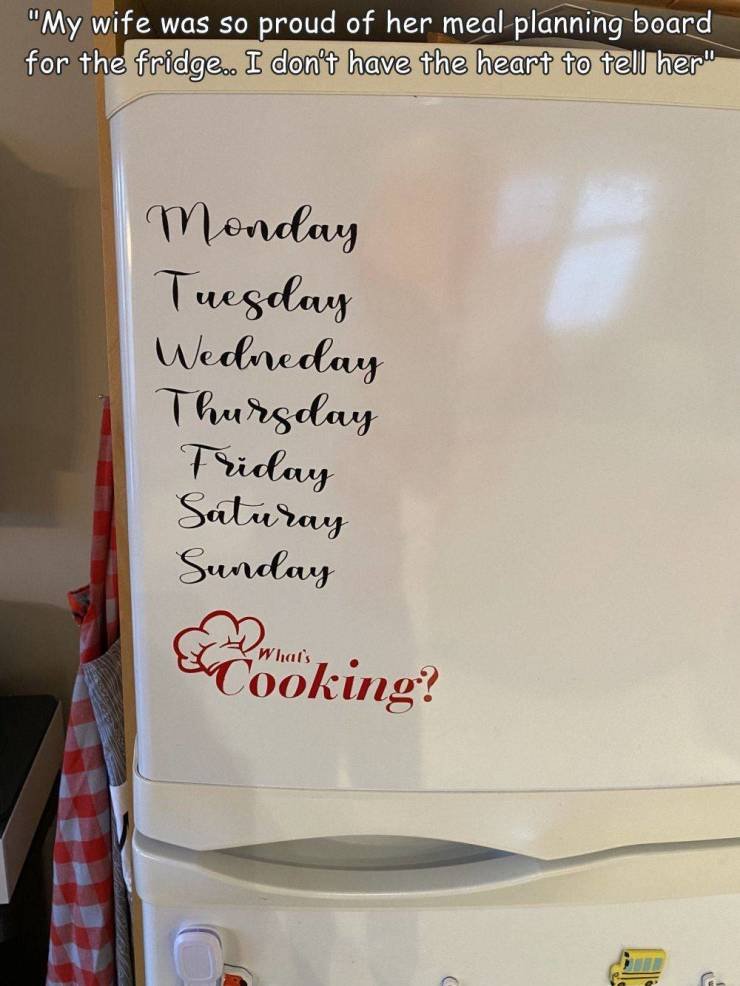 "My wife was so proud of her meal planning board
for the fridge.. I don't have the heart to tell her"
Monday
Tuesday
Wedneday
Thursday
Friday
Saturay
Sunday
What's
Cooking?